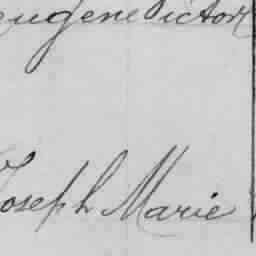 Eugene Victor
Joseph Marie